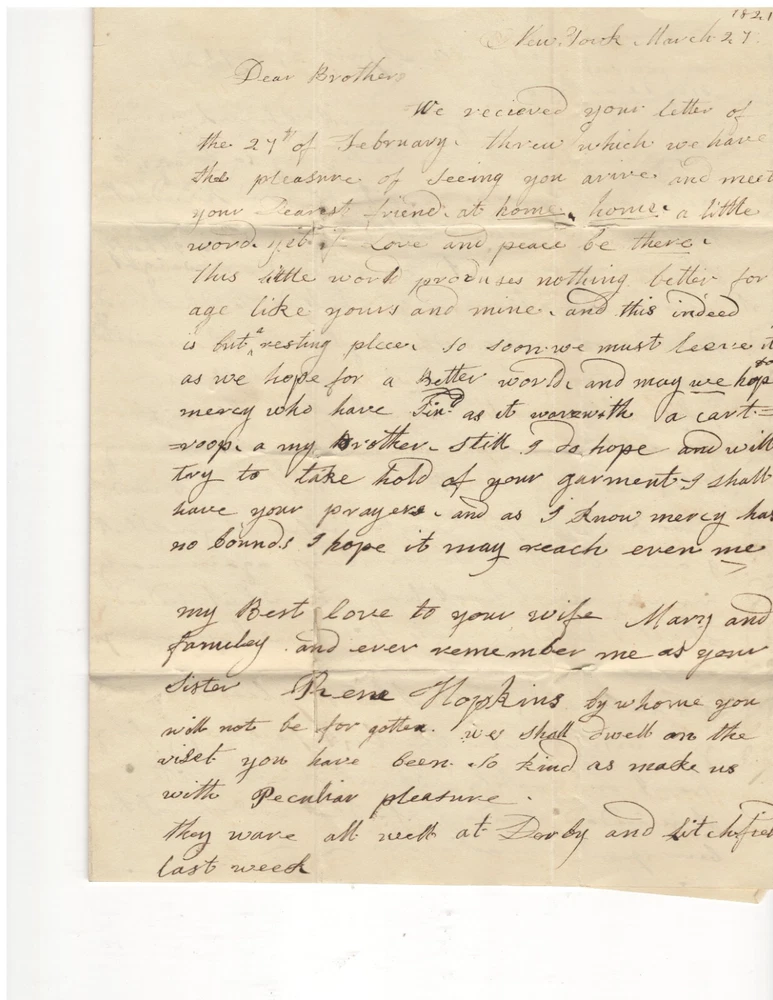 1821
New York March 27.
Dear Brother
We recieved your letter of
the 27th of February. threw which we have
the pleasure of seeing you arive and meet
your Dearest friend. at home, home. a little
word. yet if Love and peace be there.
this little world produses nothing better for
age like yours and mine. and this indeed
is but a resting plece. so soon we must leeve it
as we hope for a Better world. and may we hope for
mercy who have Sin'd as it ware with a cart=
=roop. a my Brother. still I do hope and will
try to take hold of your garment - I shall
have your prayers. and as I know mercy has
no bounds I hope it may reach even me
my Best love to your wife Mary and
famuley. and ever remember me as your
Sister Rene Hopkins by whome you
will not be for gotten. we shall dwell on the
viset you have been so kind as make us
with Peculiar pleasure.
they ware all well at Derby and Litchfield
last week